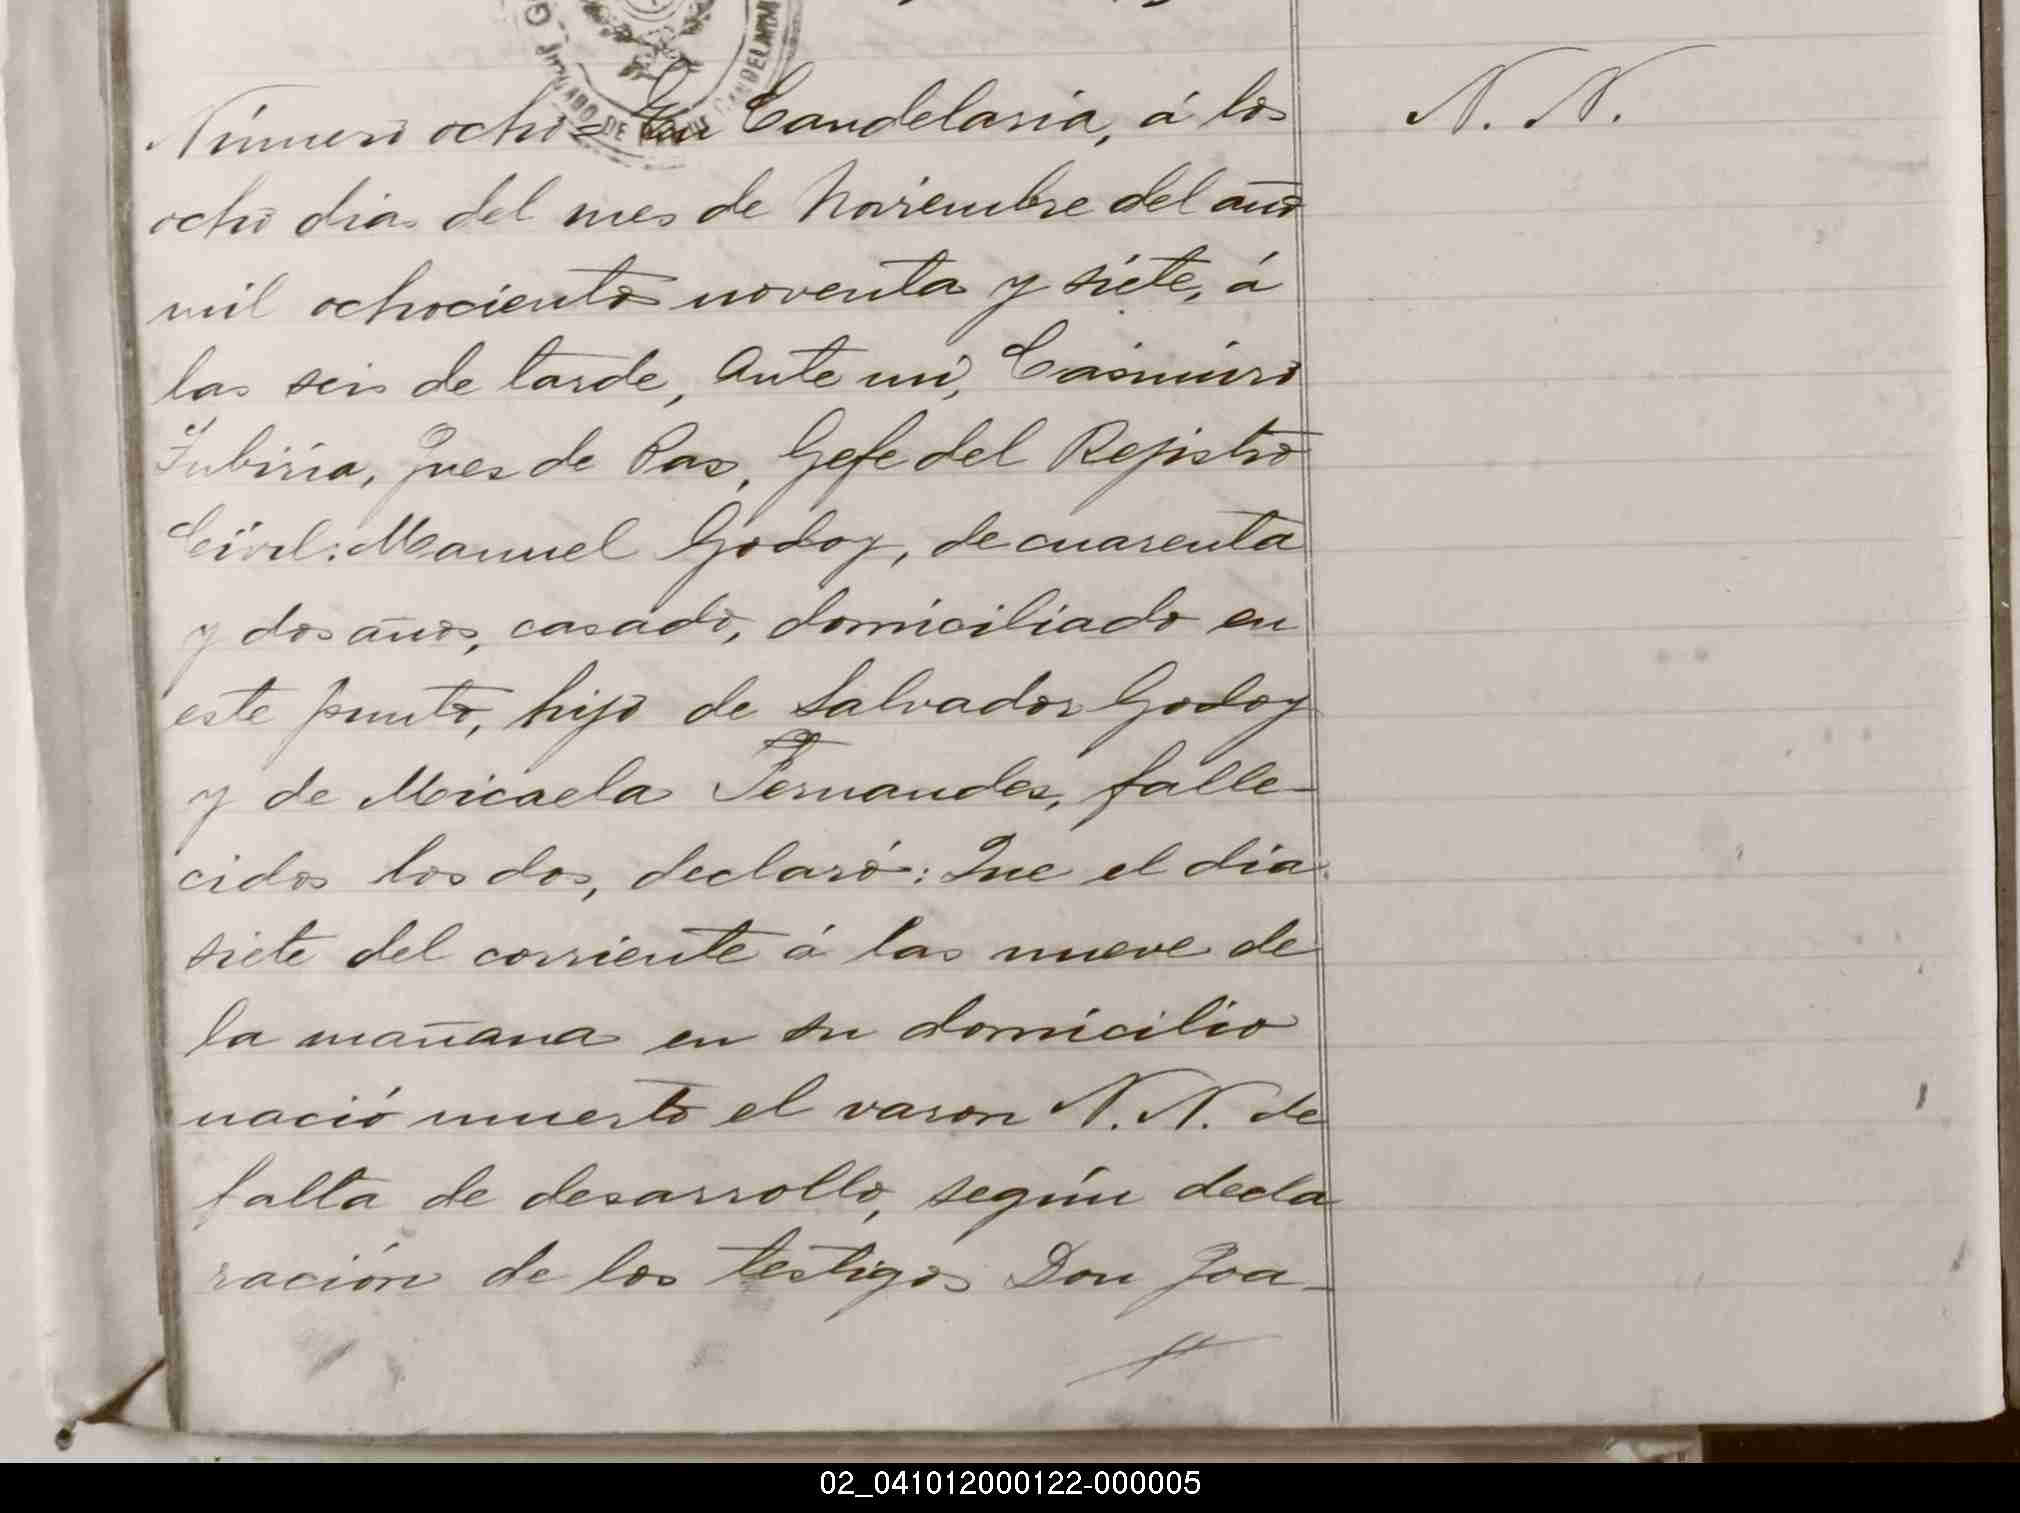 Número ocho = En Candelaria, á los
N. N.
ocho dias del mes de Noviembre del año
mil ochocientos noventa y siete, á
las seis de tarde, Ante mi, Casimiro
Jues de Pas, Gefe del Rejistro
Civil: Manuel Godoy, de cuarenta
y dos años, casado, domiciliado en
este punto, hijo de Salvador Godoy
y de Micaela Fernandes, falle-
cidos los dos, declaró: Que el dia
siete del corriente á las nueve de
la mañana en su domicilio
nació muerto el varon N. N. de
falta de desarrollo, según decla
ración de los testigos Don Joa-
02_041012000122-000005